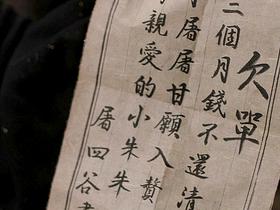 欠單
二個月錢不還清
屠屠甘願入贅
親愛的小朱朱
屠四谷